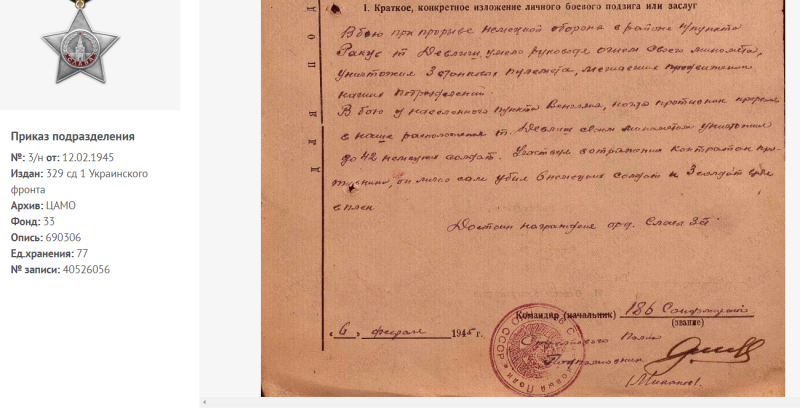 СЛАВА
Приказ подразделения
№: 3/н от: 12.02.1945
Издан: 329 сд 1 Украинского
фронта
Архив: ЦАМО
Фонд: 33
Опись: 690306
Ед.хранения: 77
№ записи: 40526056
I. Краткое, конкретное изложение личного боевого подвига или заслуг
В бою при прорыве немецкой обороны в районе
т. умело руководя огнем своего миномета,
уничтожил 3 станковых пулемета, мешавших продвижению
наших подразделений.
В бою у населенного пункта когда противник
в наше расположение т. своим минометом уничтожил
до 42 немецких солдат. Участвуя в отражении контратак про-
тивника, он лично сам убил 6 немецких солдат и 3 солдат взял
в плен
Достоин награждения орд. Слава 3 ст.
Командир (начальник)
(звание)
"6" февраля 1945 г.
Полка
Подполковник